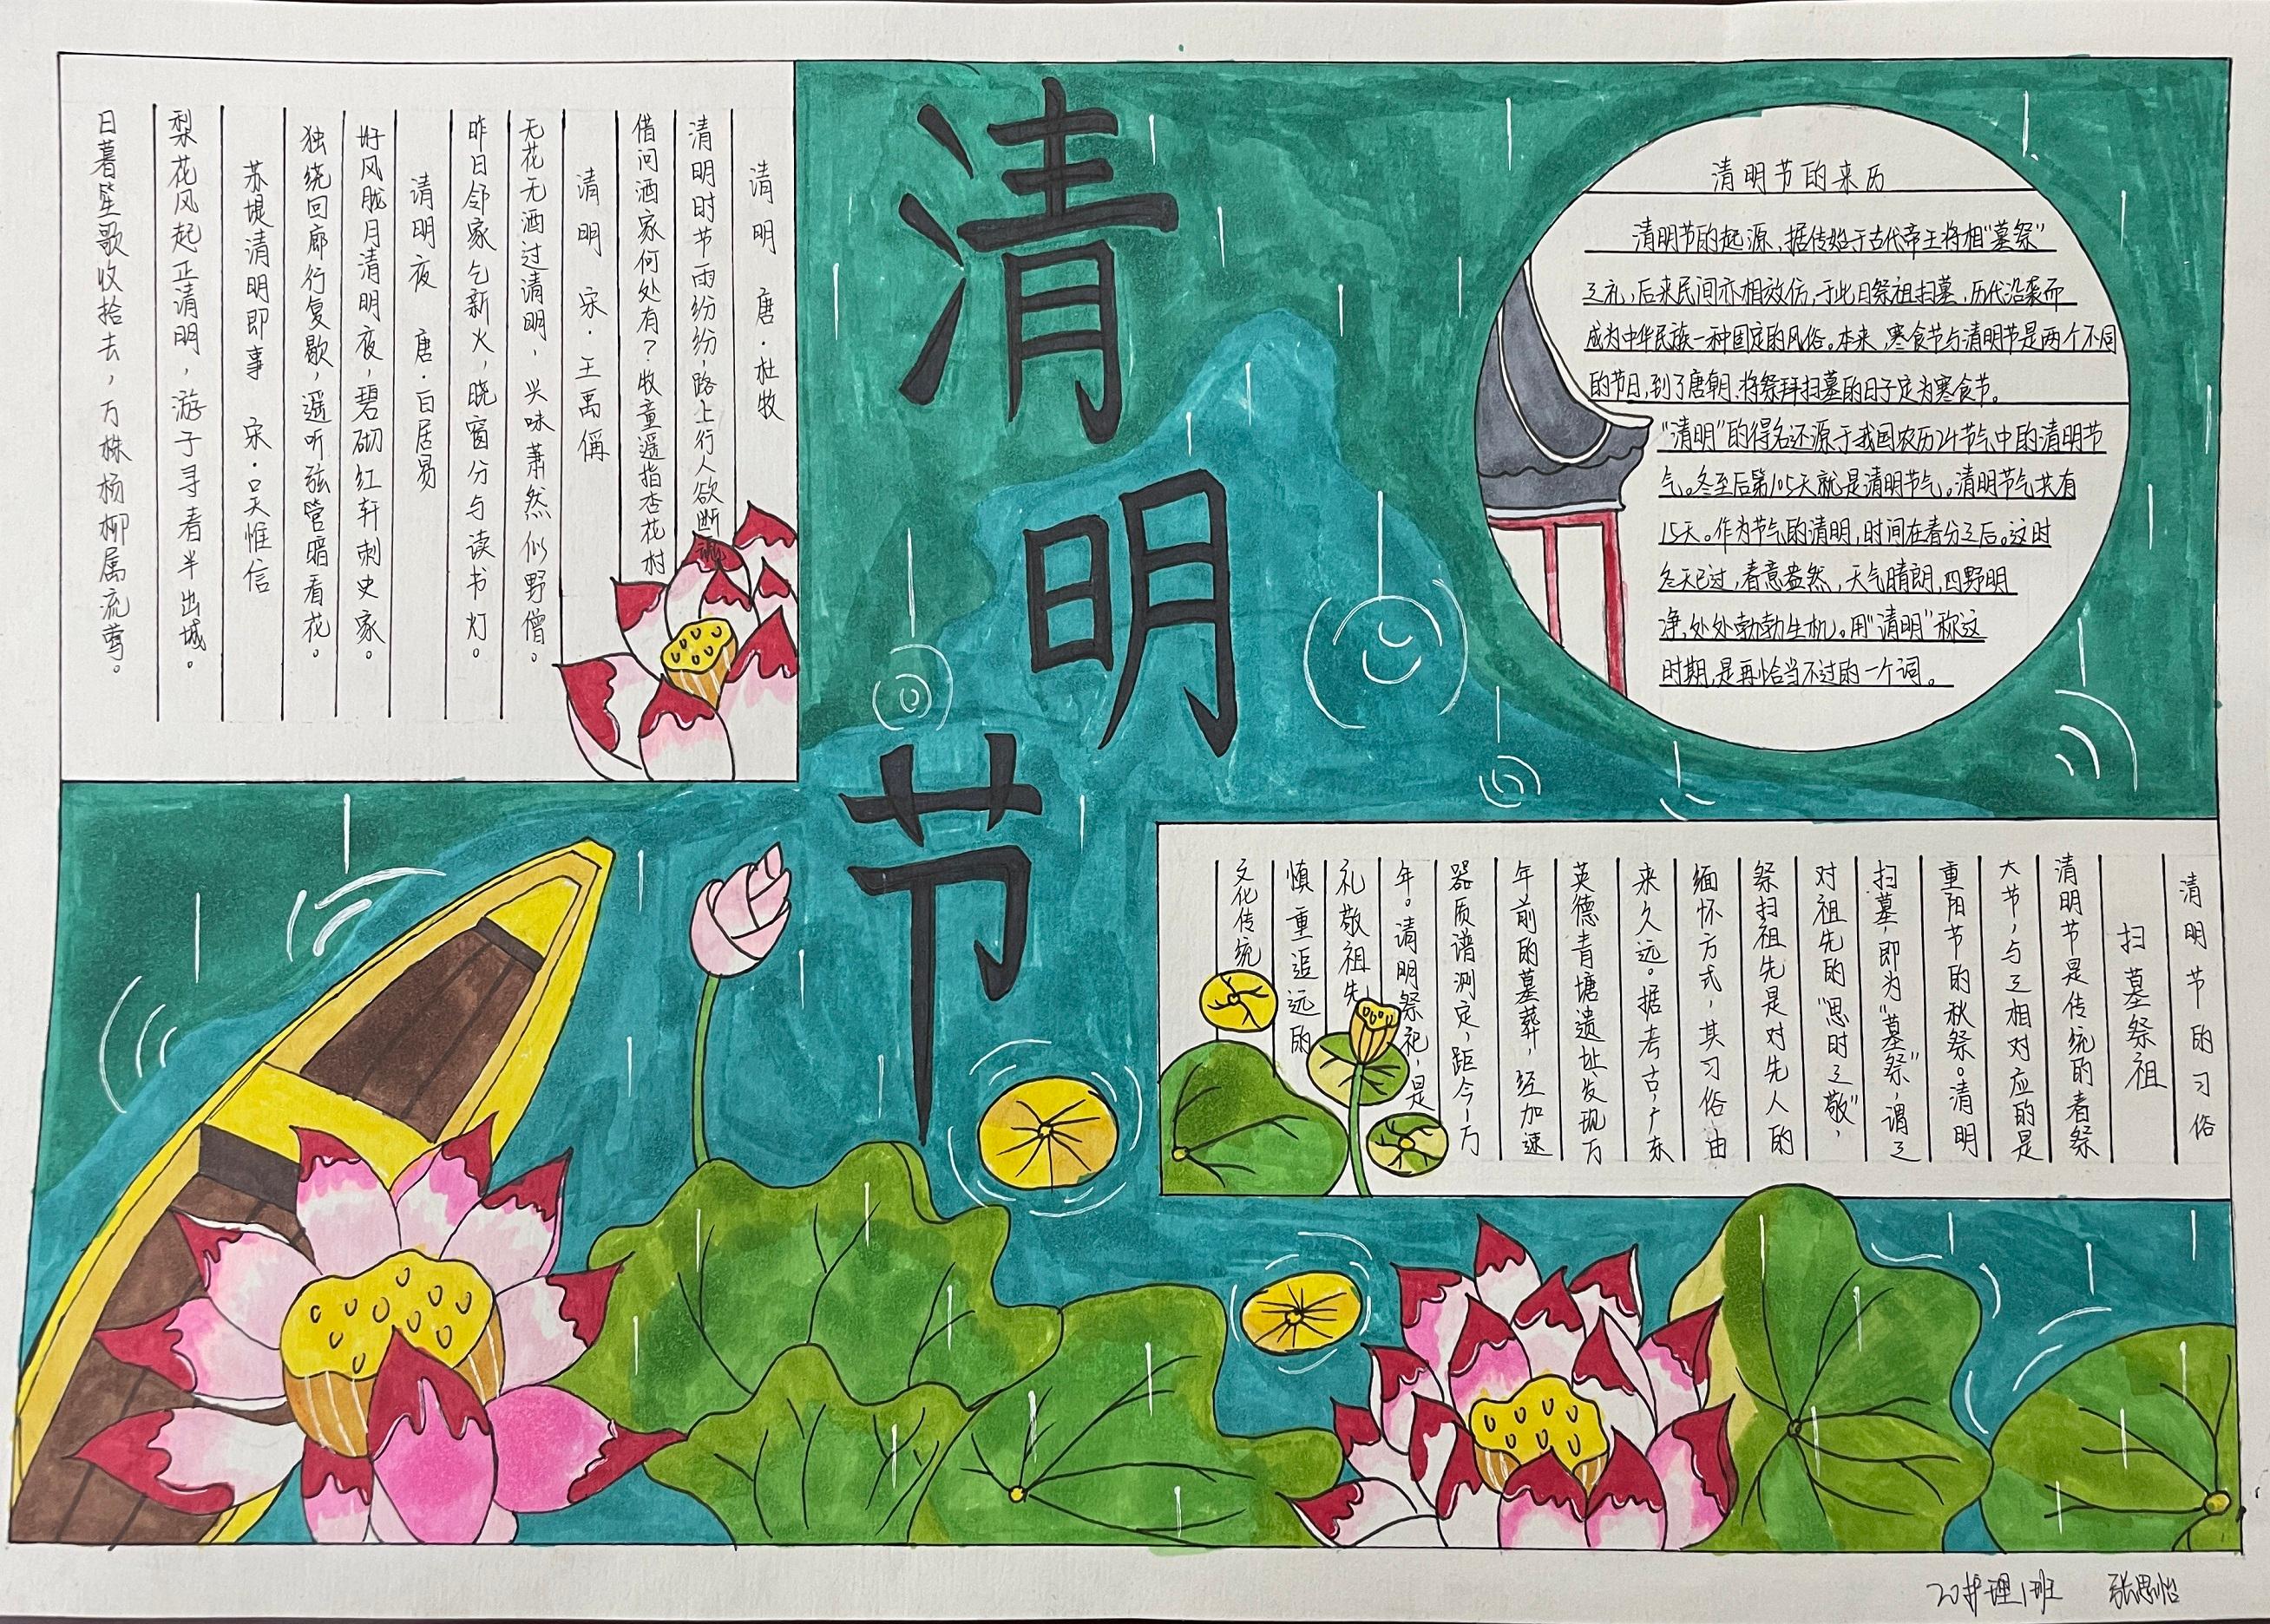 清明节
清明 唐·杜牧
清明时节雨纷纷，路上行人欲断魂
借问酒家何处有？牧童遥指杏花村
清明 宋·王禹偁
无花无酒过清明，兴味萧然似野僧。
昨日邻家乞新火，晓窗分与读书灯。
清明夜 唐·白居易
好风胧月清明夜，碧砌红轩刺史家。
独绕回廊行复歇，遥听弦管暗看花。
苏堤清明即事 宋·吴惟信
梨花风起正清明，游子寻春半出城。
日暮笙歌收拾去，万株杨柳属流莺。
清明节的来历
清明节的起源，据传始于古代帝王将相“墓祭”
之礼，后来民间亦相效仿，于此日祭祖扫墓，历代沿袭而
成为中华民族一种固定的风俗。本来，寒食节与清明节是两个不同
的节日，到了唐朝，将祭拜扫墓的日子定为寒食节。
“清明”的得名还源于我国农历24节气中的清明节
气。冬至后第105天就是清明节气。清明节气共有
15天。作为节气的清明，时间在春分之后。这时
冬天已过，春意盎然，天气晴朗，四野明
净，处处勃勃生机。用“清明”称这
时期，是再恰当不过的一个词。
清明节的习俗
扫墓祭祖
清明节是传统的春祭
大节，与之相对应的是
重阳节的秋祭。清明
扫墓，即为“墓祭”，谓之
对祖先的“思时之敬”，
祭扫祖先是对先人的
缅怀方式，其习俗由
来久远。据考古，广东
英德青塘遗址发现万
年前的墓葬，经加速
器质谱测定，距今一万
年。清明祭祀，是
礼敬祖先
慎重追远的
文化传统
20护理1班 张思怡